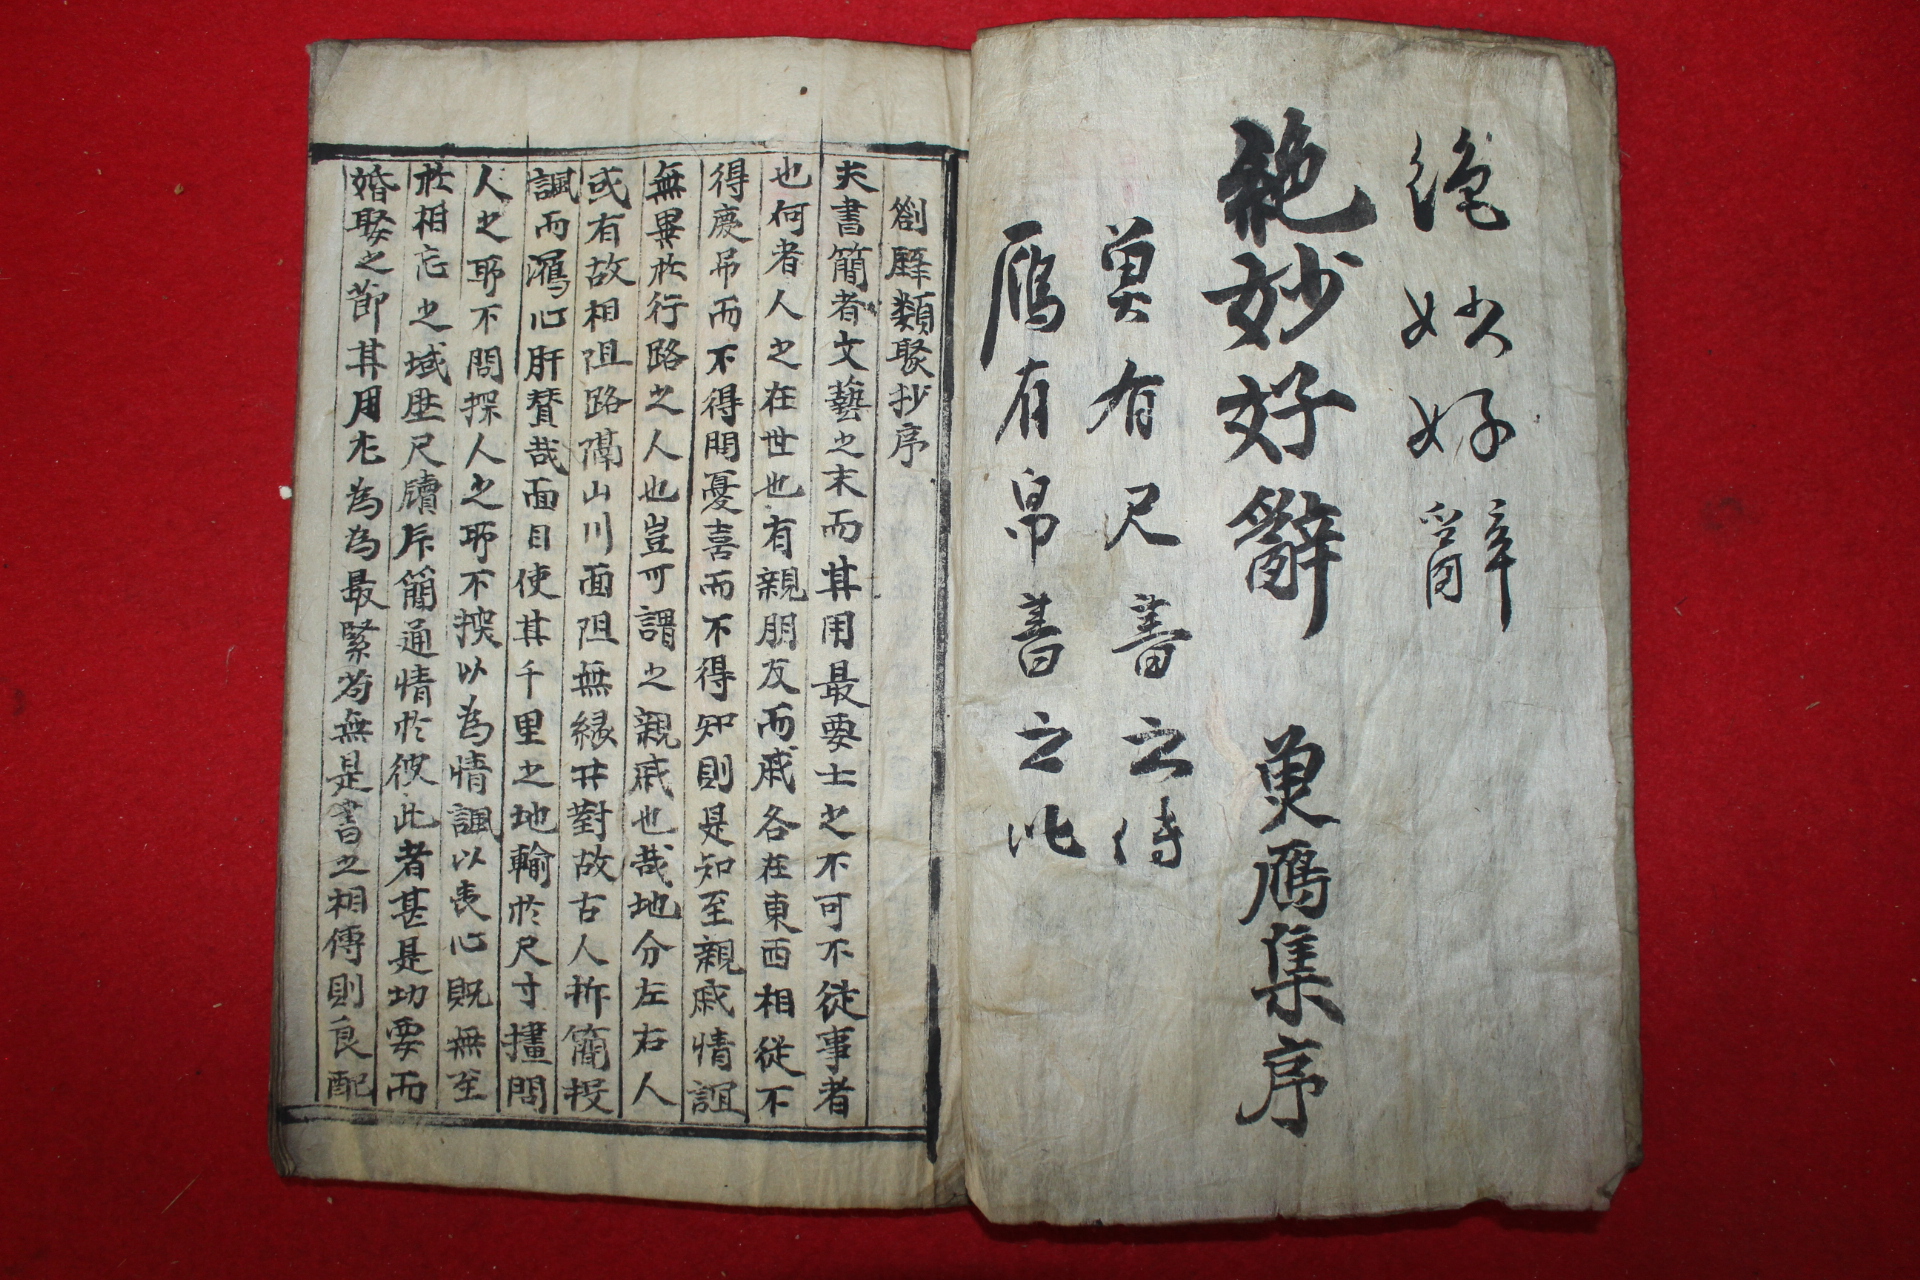 絶妙好辭
絶妙好辭 魚雁集序
魚有尺書之傳
雁有帛書之
劄驛類聚抄序
夫書簡者文藝之末而其用最要士之不可不從事者
也何者人之在世也有親朋友而戚各在東西相從不
得慶吊而不得聞憂喜而不得知則是知至親戚情誼
無異於行路之人也豈可謂之親戚也哉地分左右人
或有故相阻路隔山川面阻無緣其對故古人折簡投
諷而瀉心肝賛哉面目使其千里之地輸於尺寸攄問
人之耶不問探人之耶不探以為情諷以喪心既無至
於相忘之域歷尺牘斥簡通情於彼此者甚是切要而
婚娶之節其用尤為為最緊若無是書之相傳則良配